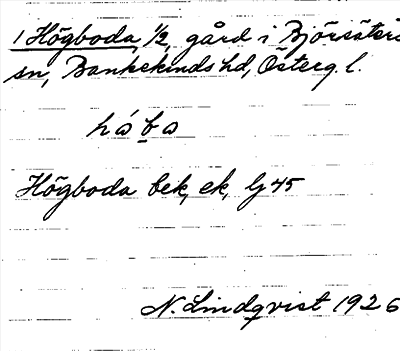 1 Högboda, 1/2, gård i Björsäters
sn, Bankekinds hd, Österg. l.
hó̀bo
Högboda bek, ek, lj 45
N. Lindqvist 1926